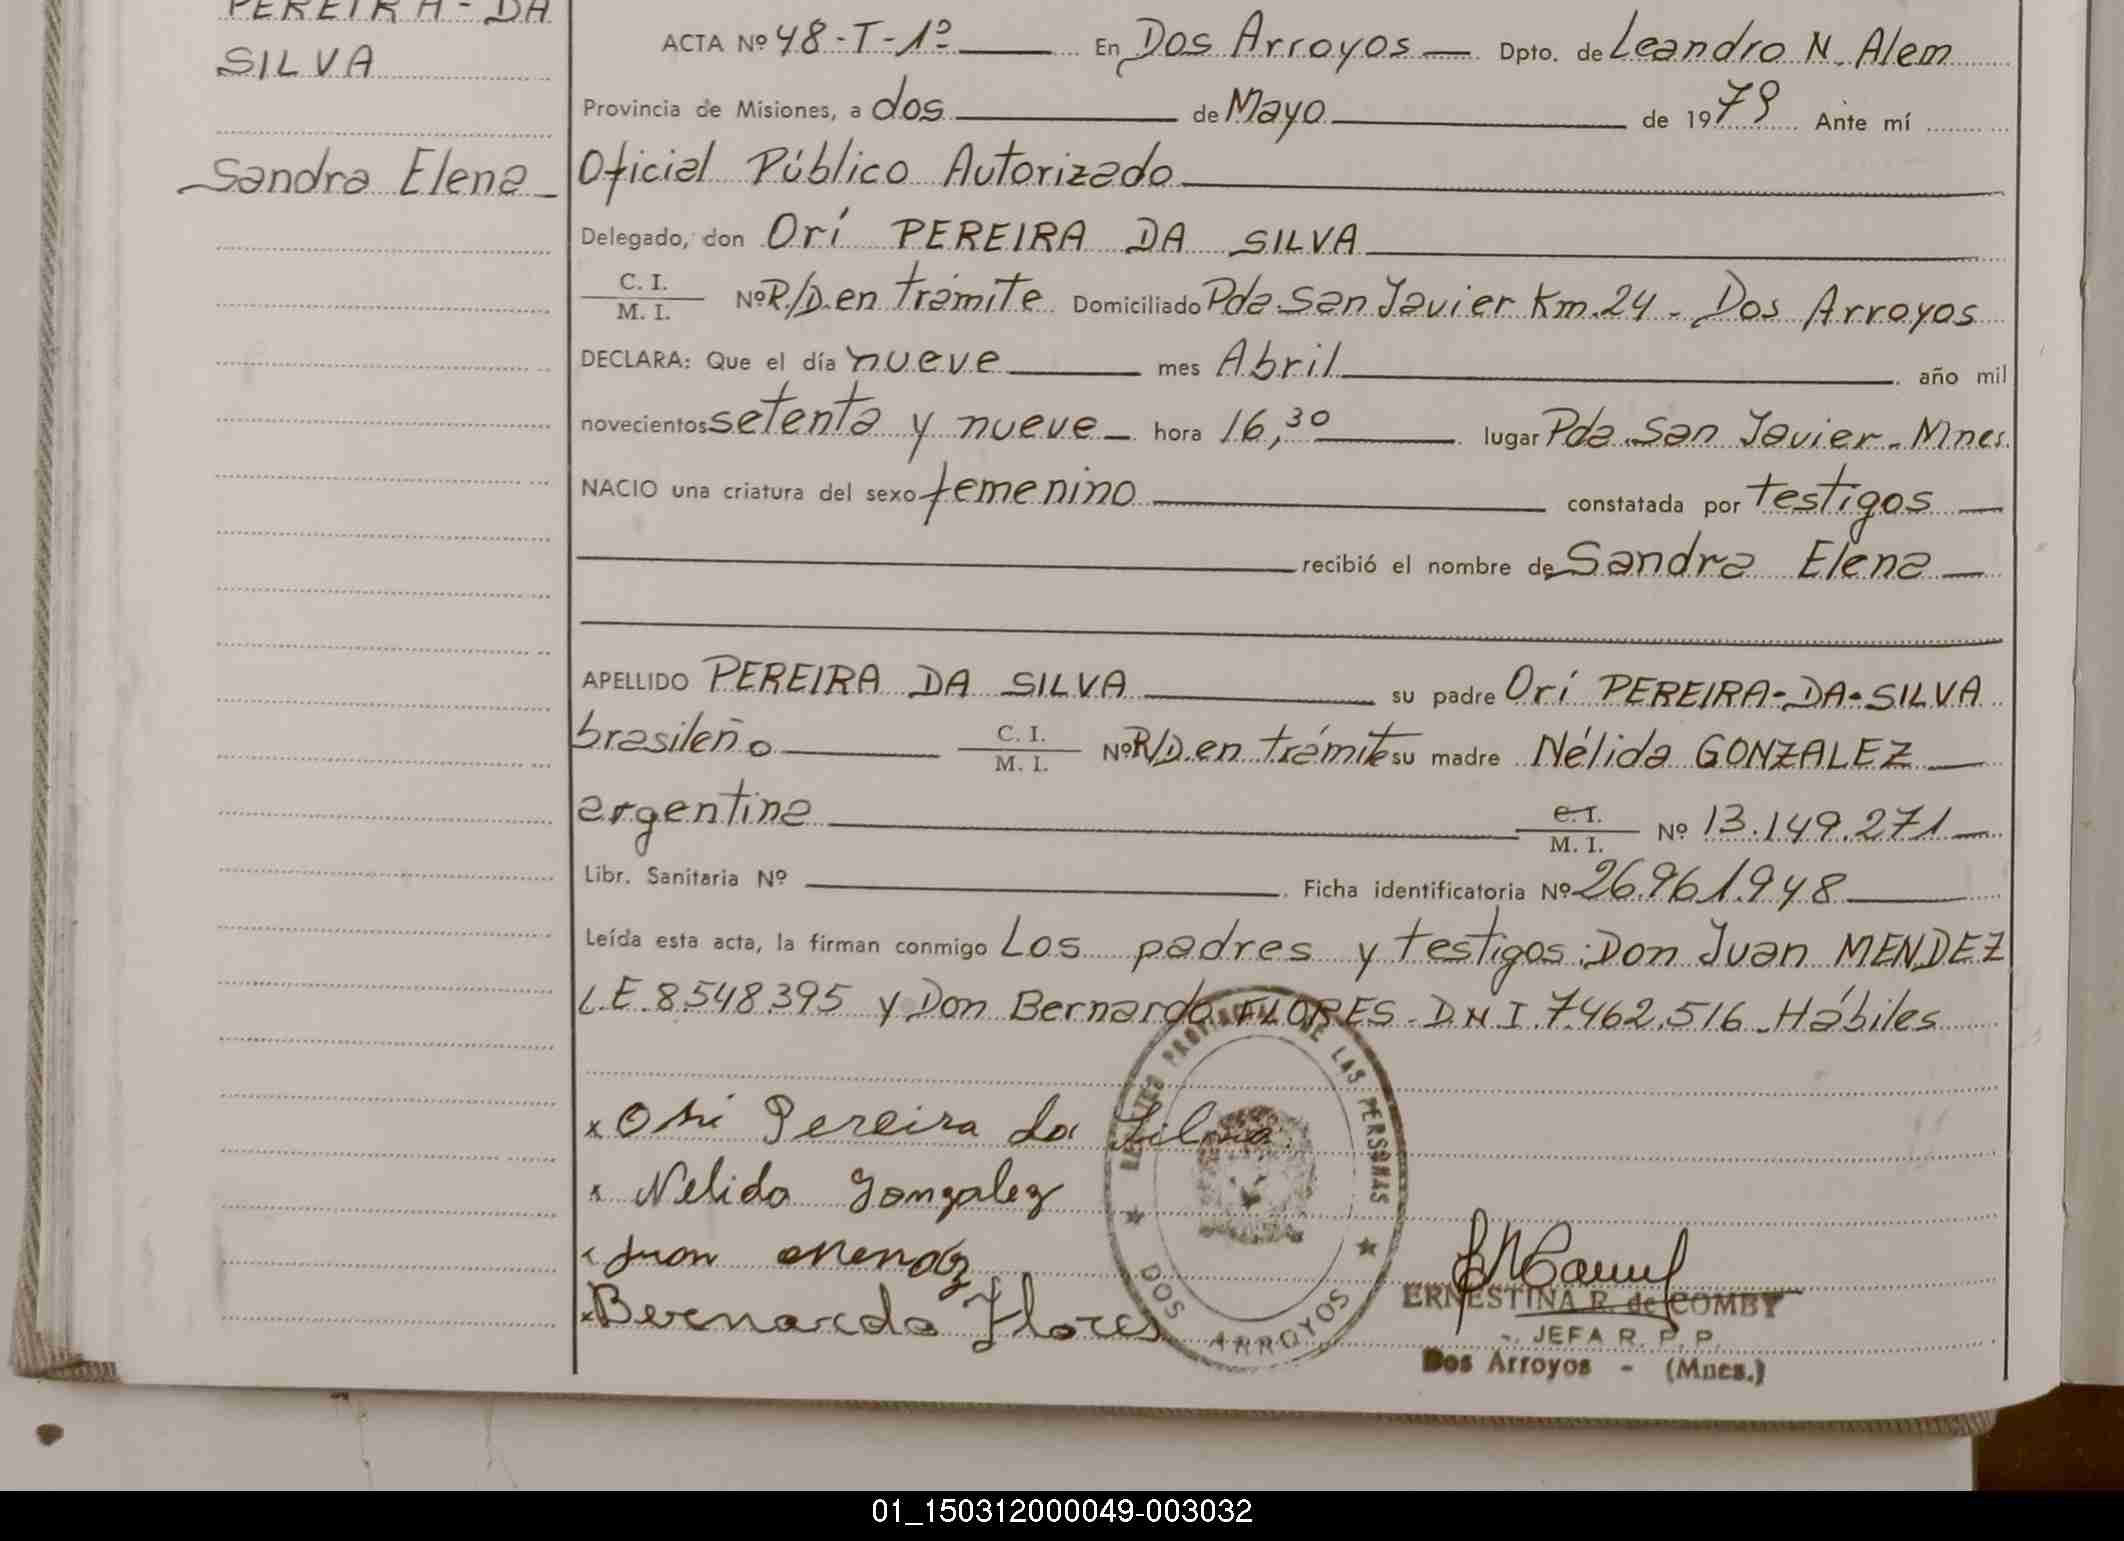 PEREIRA-DA
SILVA
Sandra Elena
ACTA Nº 48-T-1º En Dos Arroyos Dpto. de Leandro N. Alem
Provincia de Misiones, a dos de Mayo de 1979 Ante mí
Oficial Público Autorizado
Delegado, don Orí PEREIRA DA SILVA
C. I.
M. I.
Nº R/D. en trámite Domiciliado Pda. San Javier Km. 24 - Dos Arroyos
DECLARA: Que el día nueve mes Abril año mil
novecientos setenta y nueve hora 16,30 lugar Pda. San Javier - Mnes.
NACIO una criatura del sexo femenino constatada por testigos
recibió el nombre de Sandra Elena
APELLIDO PEREIRA DA SILVA su padre Orí PEREIRA-DA-SILVA
brasileño C. I. / M. I. Nº R/D. en trámite su madre Nélida GONZALEZ
argentina C. I. / M. I. Nº 13.149.271
Libr. Sanitaria Nº Ficha identificatoria Nº 26.961.948
Leída esta acta, la firman conmigo Los padres y testigos: Don Juan MENDEZ
L.E. 8.548.395 y Don Bernardo FLORES - DNI. 7.462.516 - Hábiles
x Orí Pereira da Silva
x Nelida Gonzalez
x Juan Mendez
x Bernardo Flores
DE LAS PERSONAS
DOS ARROYOS
ERNESTINA R. de COMBY
JEFA R. P. P.
Dos Arroyos - (Mnes.)
01_150312000049-003032